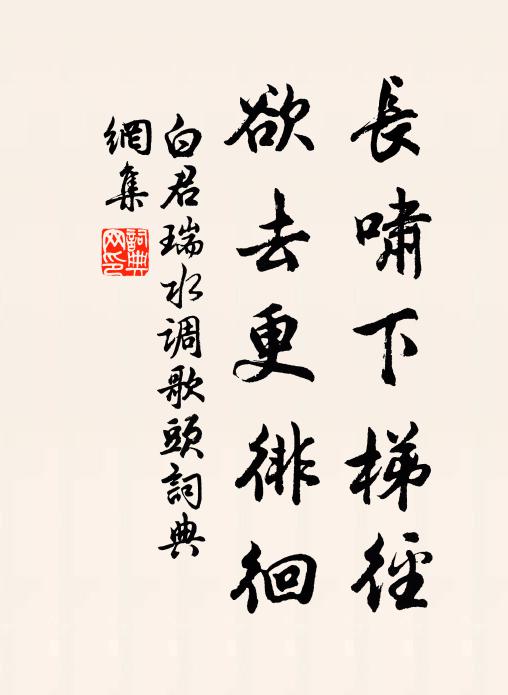 長嘯下梯徑
欲去更徘徊
白君瑞水调歌頭詞典
網集
詞典网印